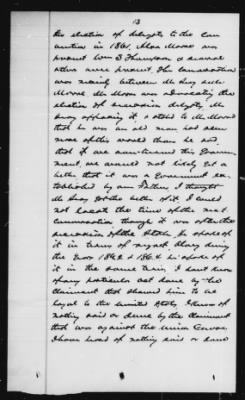 13
the election of delegates to the Con
vention in 1861, Alex Moore was
present Wm S Thompson & several
others were present. The Conversation
was mainly between Mr Gray and
Moore Mr Moore was advocating the
election of secession delegates, Mr
Gray opposing it, & stated to Mr Moore
that he was an old man had seen
more of this world than he had,
that if we overturned this Govern
ment, we would not likely get a
better that it was a Government es
tablished by our Fathers, I thought
Mr Gray got the better of it, I could
not locate the time of the next
Conversation though it was after the
secession of the State, he spoke of
it in terms of regret. Also during
the war 1863 & 1864 he spoke of
it in the same terms, I don't know
of any particular act done by the
Claimant that showed him to be
loyal to the United States, I know of
nothing said or done by the Claimant
that was against the Union Cause,
I have heard of nothing said or done